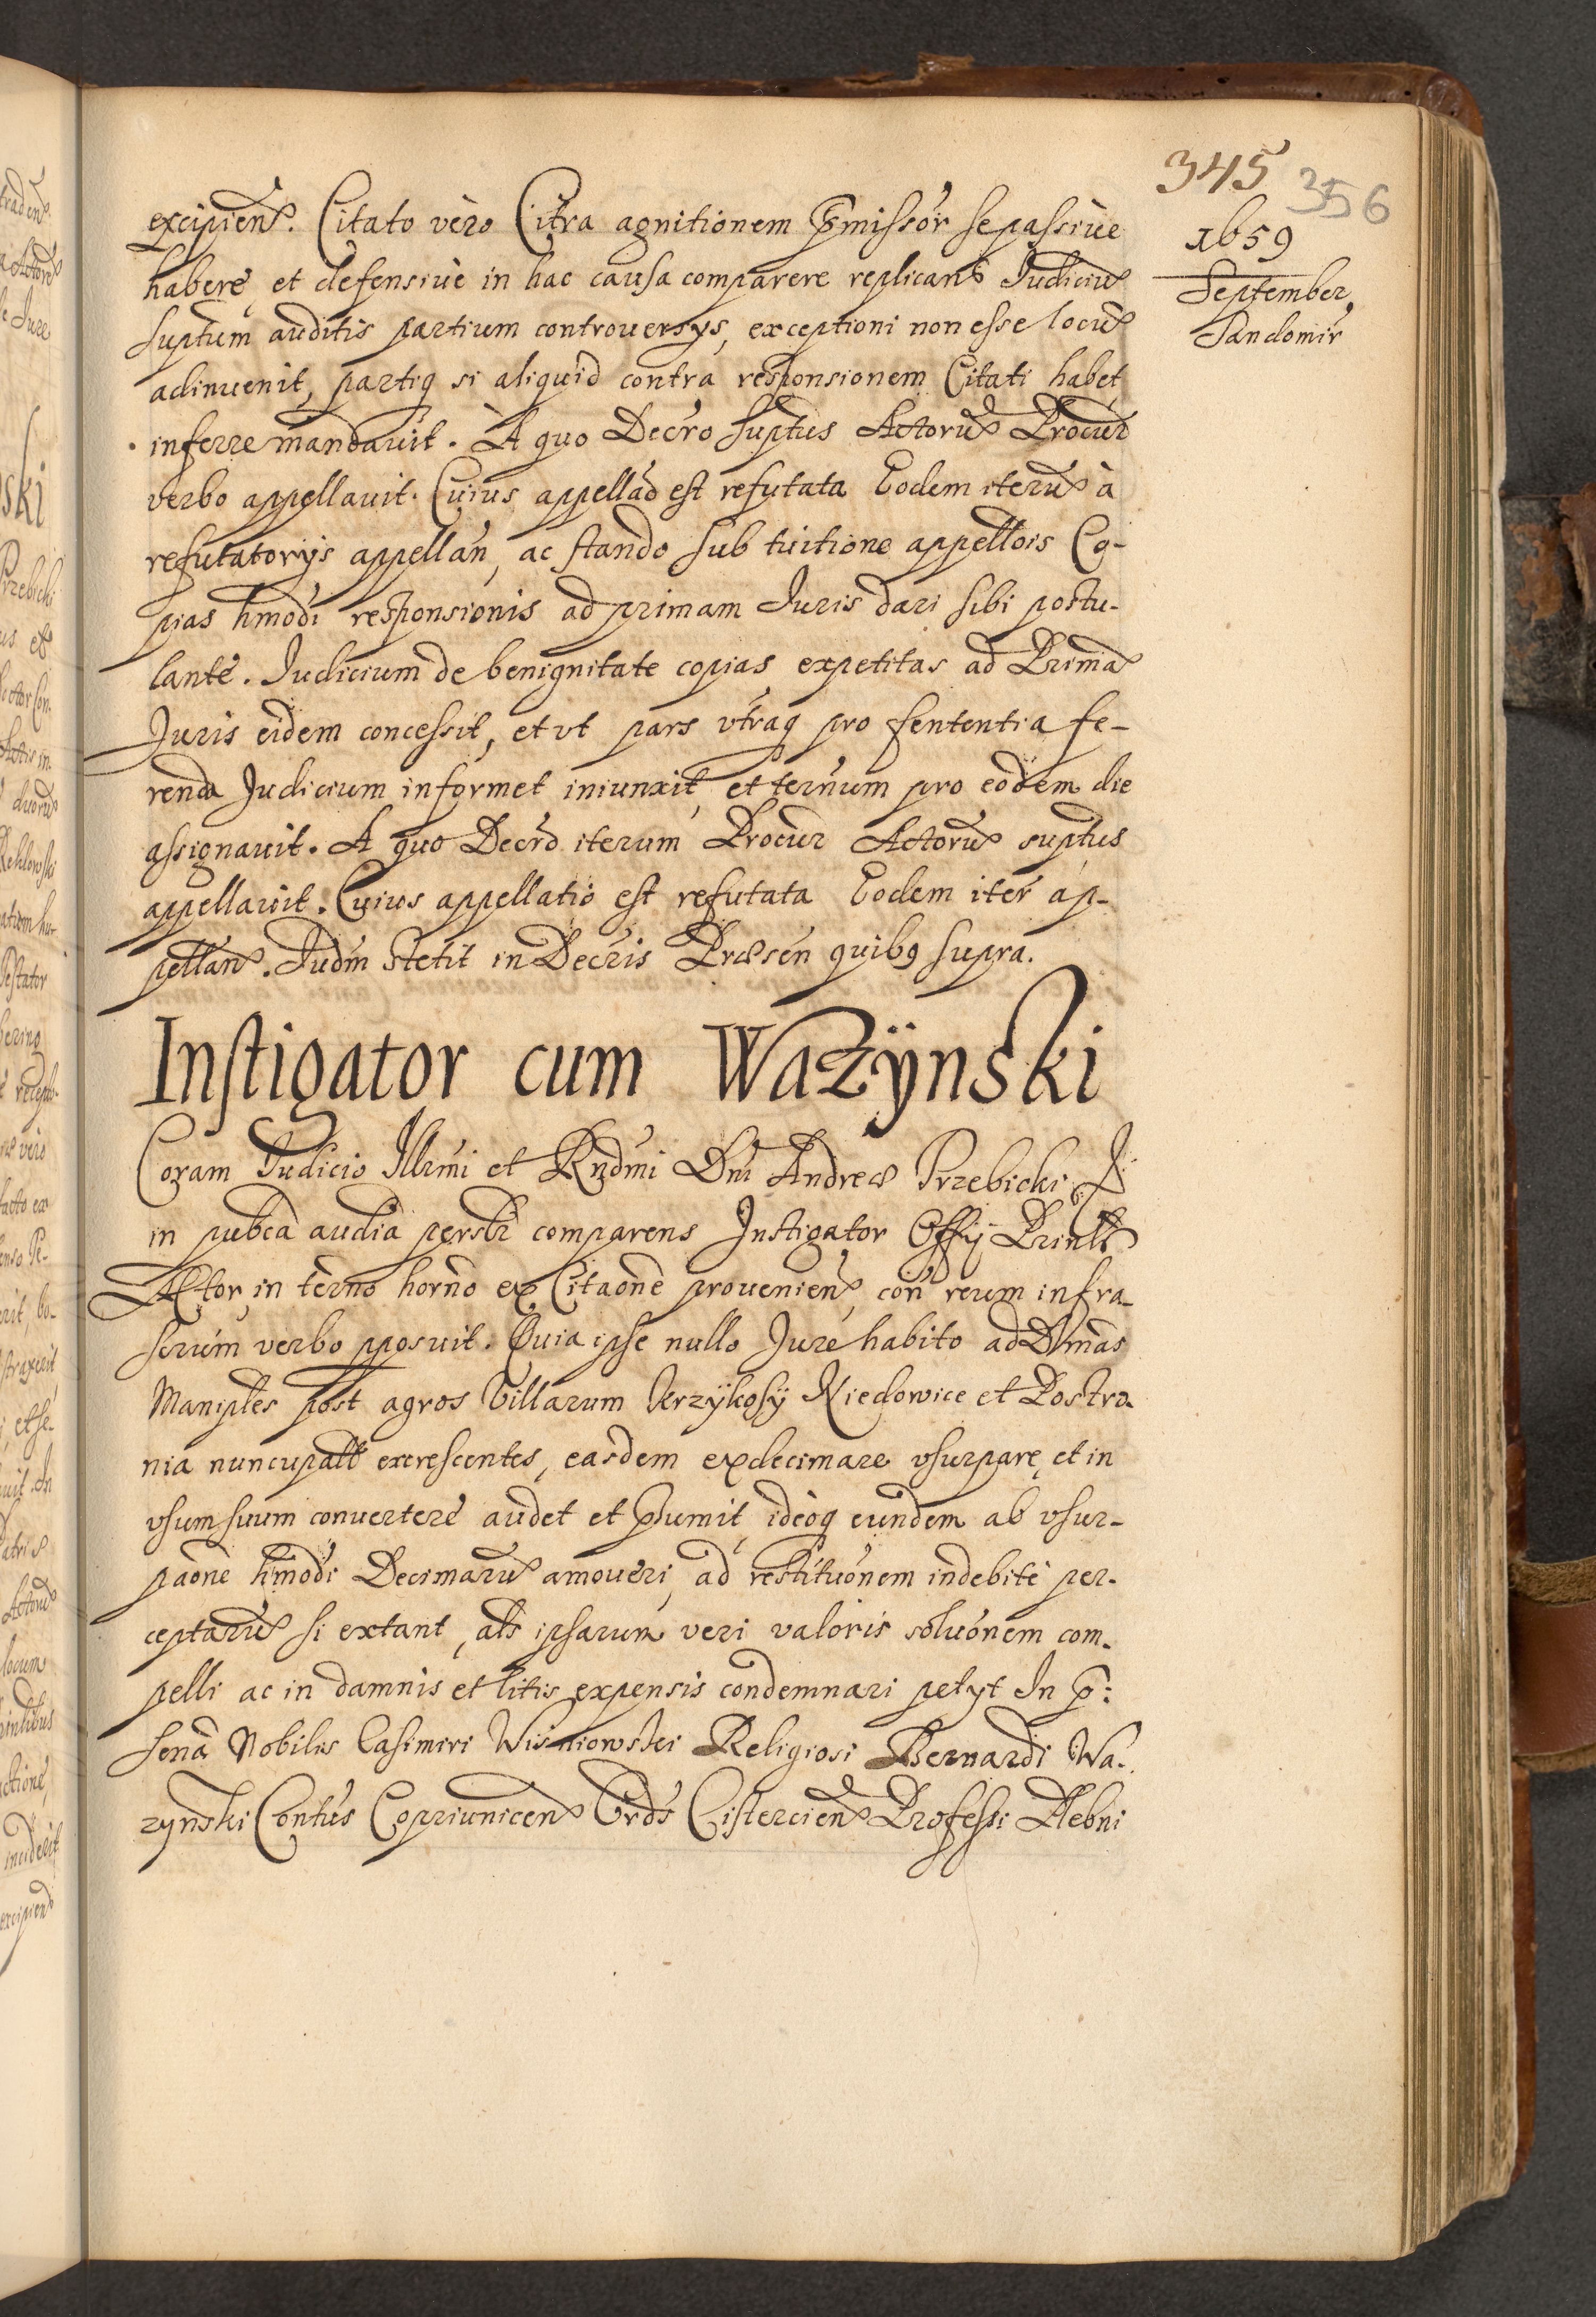 345 356
1659
September
Sandomir
excipien. Citato vèro Citra agnitionem pmissor se passiue
habere, et defensiue in hac causa comparere replicans Judiciu
suptum auditis partium controuersys, exceptioni non esse locu
adinuenit, partiq si aliquid contra responsionem Citati habet
inferre mandauit. A quo Decro suptus Actoru Procur
verbo appellauit. Cuius appellao est refutata Eodem iteru à
refutatorijs appellan, ac stando sub tuitione appellois Co-
pias hmodi responsionis ad primam Juris dari sibi postu-
lante. Judicium de benignitate copias expetitas ad Prima
Juris eidem concessit, et vt pars vtraq pro sententia fe-
renda Judicium informet iniunxit, et ternum pro eodem die
assignauit. A quo Decro iterum Procur Actoru suptus
appellauit. Cuius appellatio est refutata Eodem iter ap-
pellan. Judm stetit in Decris Præsen quibq supra.
Instigator cum Wazÿnski
Coram Judicio Illrmi et Rndmi Dni Andreæ Trzebicki
in pubca audia persłr comparens Instigator Offij Printis
Actor in terno horno ex Citaone prouenien, con reum infra-
scrium verbo pposuit. Quia ipse nullo Jure habito ad Dmas
Maniples post agros Villarum Krzÿkosÿ Niedowice et Postro-
nia nuncupatt excrescentes, easdem exdecimare vsurpare, et in
vsum suum conuertere audet et psumit, ideoq eundem ab vsur-
paone hmodi Decimaru amoueri, ad restituonem indebite per-
ceptaru si extant, als ipsarum veri valoris soluonem com-
pelli ac in damnis et litis expensis condemnari petyt In p:
senâ Nobilis Casimiri Wisniowski Religiosi Bernardi Wa-
zynski Contus Copriunicen Ords Cistercien Professi Plebni